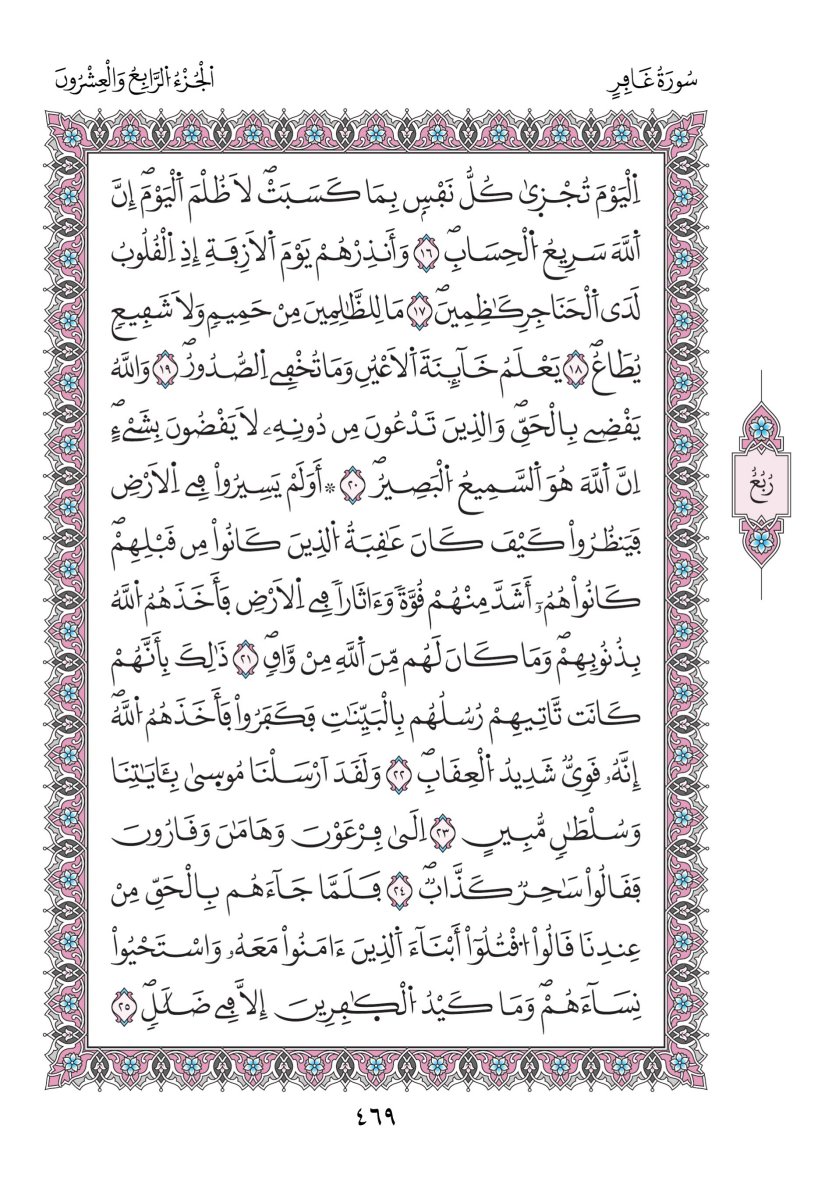 سُورَةُ غَافِرٍ
اَلْجُزْءُ الرَّابِعُ وَالْعِشْرُونَ
اِ۬لْيَوْمَ تُجْز۪يٰ كُلُّ نَفْسِۢ بِمَا كَسَبَتْۖ لَا ظُلْمَ اَ۬لْيَوْمَۖ إِنَّ
اَ۬للَّهَ سَرِيعُ اُ۬لْحِسَابِۖ ١٦ وَأَنذِرْهُمْ يَوْمَ اَ۬لَازِفَةِ إِذِ اِ۬لْقُلُوبُ
لَدَى اَ۬لْحَنَاجِرِ كَٰظِمِينَۖ ١٧ مَا لِلظَّٰلِمِينَ مِنْ حَمِيمٖ وَلَا شَفِيعٖ
يُطَاعُۖ ١٨ يَعْلَمُ خَآئِنَةَ اَ۬لَاعْيُنِ وَمَا تُخْفِے اِ۬لصُّدُورُۖ ١٩ وَاللَّهُ
يَقْضِے بِالْحَقِّۖ وَالذِينَ تَدْعُونَ مِن دُونِهِۦ لَا يَقْضُونَ بِشَےْءٍۖ
اِنَّ اَ۬للَّهَ هُوَ اَ۬لسَّمِيعُ اُ۬لْبَصِيرُۖ ٢٠ ۞ أَوَلَمْ يَسِيرُواْ فِے اِ۬لَارْضِ
فَيَنظُرُواْ كَيْفَ كَانَ عَٰقِبَةُ اُ۬لذِينَ كَانُواْ مِن قَبْلِهِمْۖ
كَانُواْ هُمُۥٓ أَشَدَّ مِنْهُمْ قُوَّةٗ وَءَاثَاراٗ فِے اِ۬لَارْضِ فَأَخَذَهُمُ اُ۬للَّهُ
بِذُنُوبِهِمْۖ وَمَا كَانَ لَهُم مِّنَ اَ۬للَّهِ مِنْ وَّاقٖۖ ٢١ ذَٰلِكَ بِأَنَّهُمْ
كَانَت تَّاتِيهِمْ رُسُلُهُم بِالْبَيِّنَٰتِ فَكَفَرُواْ فَأَخَذَهُمُ اُ۬للَّهُۖ
إِنَّهُۥ قَوِيّٞ شَدِيدُ اُ۬لْعِقَابِۖ ٢٢ وَلَقَدَ اَرْسَلْنَا مُوس۪يٰ بِـَٔايَٰتِنَا
وَسُلْطَٰنٖ مُّبِينٍ ٢٣ اِلَىٰ فِرْعَوْنَ وَهَامَٰنَ وَقَٰرُونَ
فَقَالُواْ سَٰحِرٞ كَذَّابٞۖ ٢٤ فَلَمَّا جَآءَهُم بِالْحَقِّ مِنْ
عِندِنَا قَالُواْ اُ۟قْتُلُوٓاْ أَبْنَآءَ اَ۬لذِينَ ءَامَنُواْ مَعَهُۥ وَاسْتَحْيُواْ
نِسَآءَهُمْۖ وَمَا كَيْدُ اُ۬لْكٰ۪فِرِينَ إِلَّا فِے ضَلَٰلٖۖ ٢٥
رُبُعُ
٤٦٩